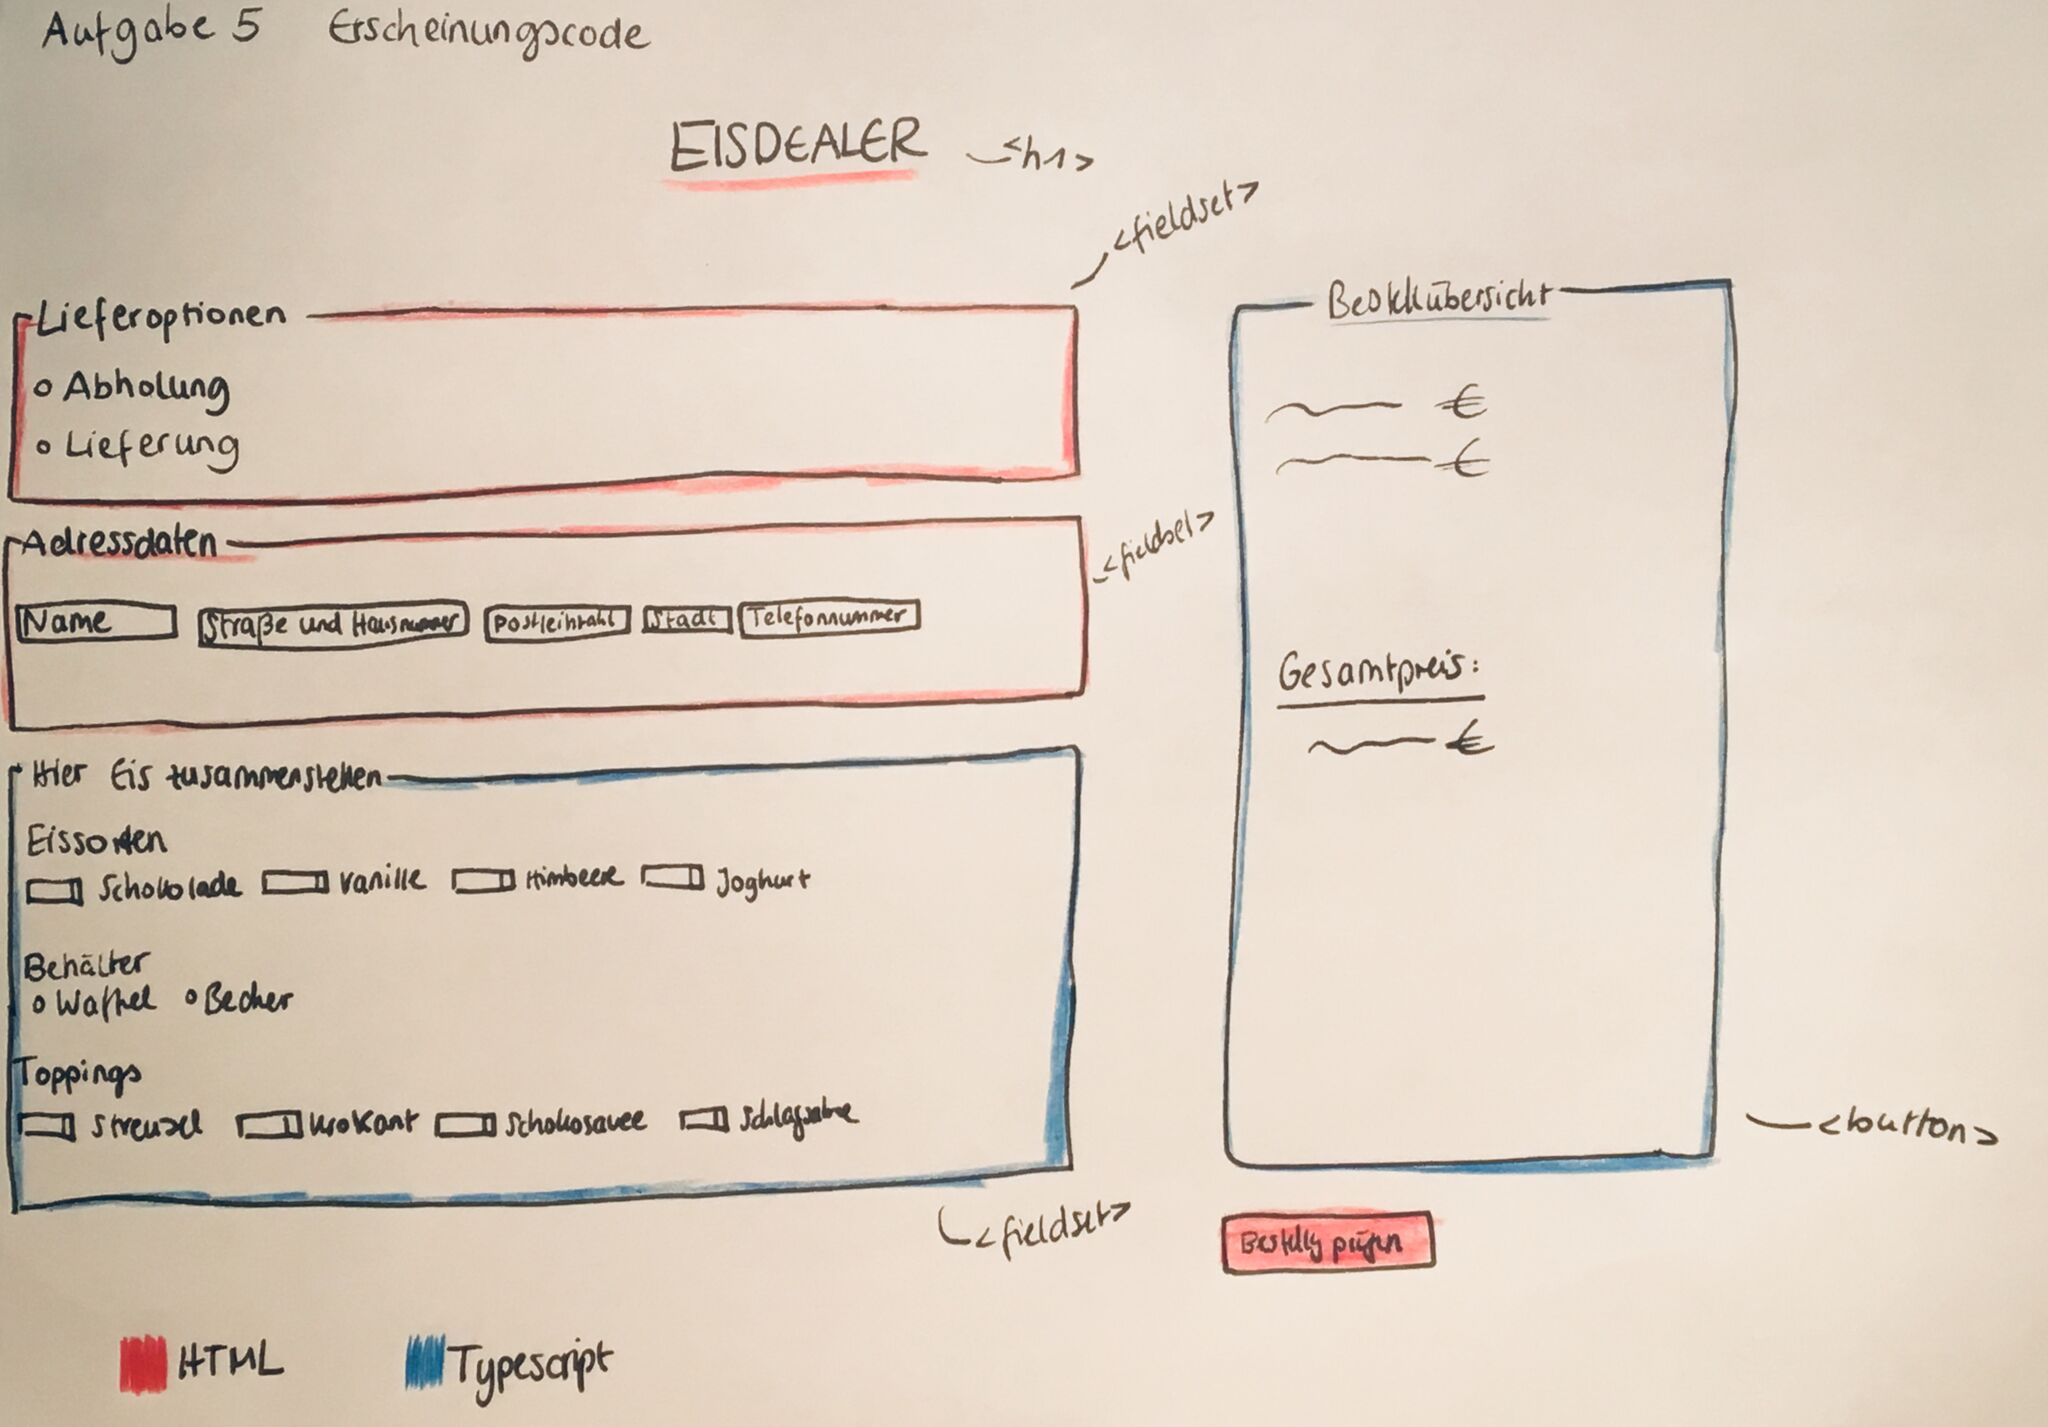 Aufgabe 5 Erscheinungscode
EISDEALER <h1>
<fieldset>
Lieferoptionen
Abholung
Lieferung
Adressdaten
<fieldset>
Name Straße und Hausnummer Postleihzahl Stadt Telefonnummer
Hier Eis zusammenstellen
Eissorten
Schokolade Vanille Himbeere Joghurt
Behälter
Waffel Becher
Toppings
Streusel Krokant Schokosauce Schlagsahne
<fieldset>
Bestellübersicht
€
€
Gesamtpreis:
€
<button>
prüfen
HTML Typescript